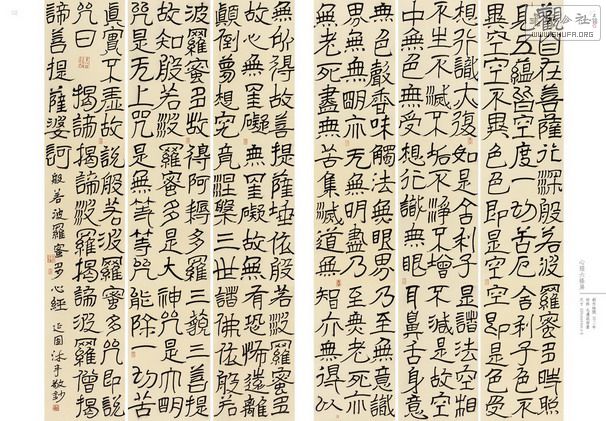 觀自在菩薩行深般若波羅蜜多時照
見五蘊皆空度一切苦厄舍利子色不
異空空不異色色即是空空即是色受
想行識亦復如是舍利子是諸法空相
不生不滅不垢不淨不增不減是故空
中無色無受想行識無眼耳鼻舌身意
無色聲香味觸法無眼界乃至無意識
界無無明亦无無明盡乃至無老死亦
無老死盡無苦集滅道無智亦無得以
無所得故菩提薩埵依般若波羅蜜多
故心無罣礙無罣礙故無有恐怖遠離
顛倒夢想究竟涅槃三世諸佛依般若
波羅蜜多故得阿耨多羅三藐三菩提
故知般若波羅蜜多是大神咒是大明
咒是无上咒是無等等咒能除一切苦
真實不虛故說般若波羅蜜多咒即說
咒曰揭諦揭諦波羅揭諦波羅僧揭
諦菩提薩婆訶
般若波羅蜜多心經 沐手敬抄
心經六條屏
WWW.SHUFA.ORG